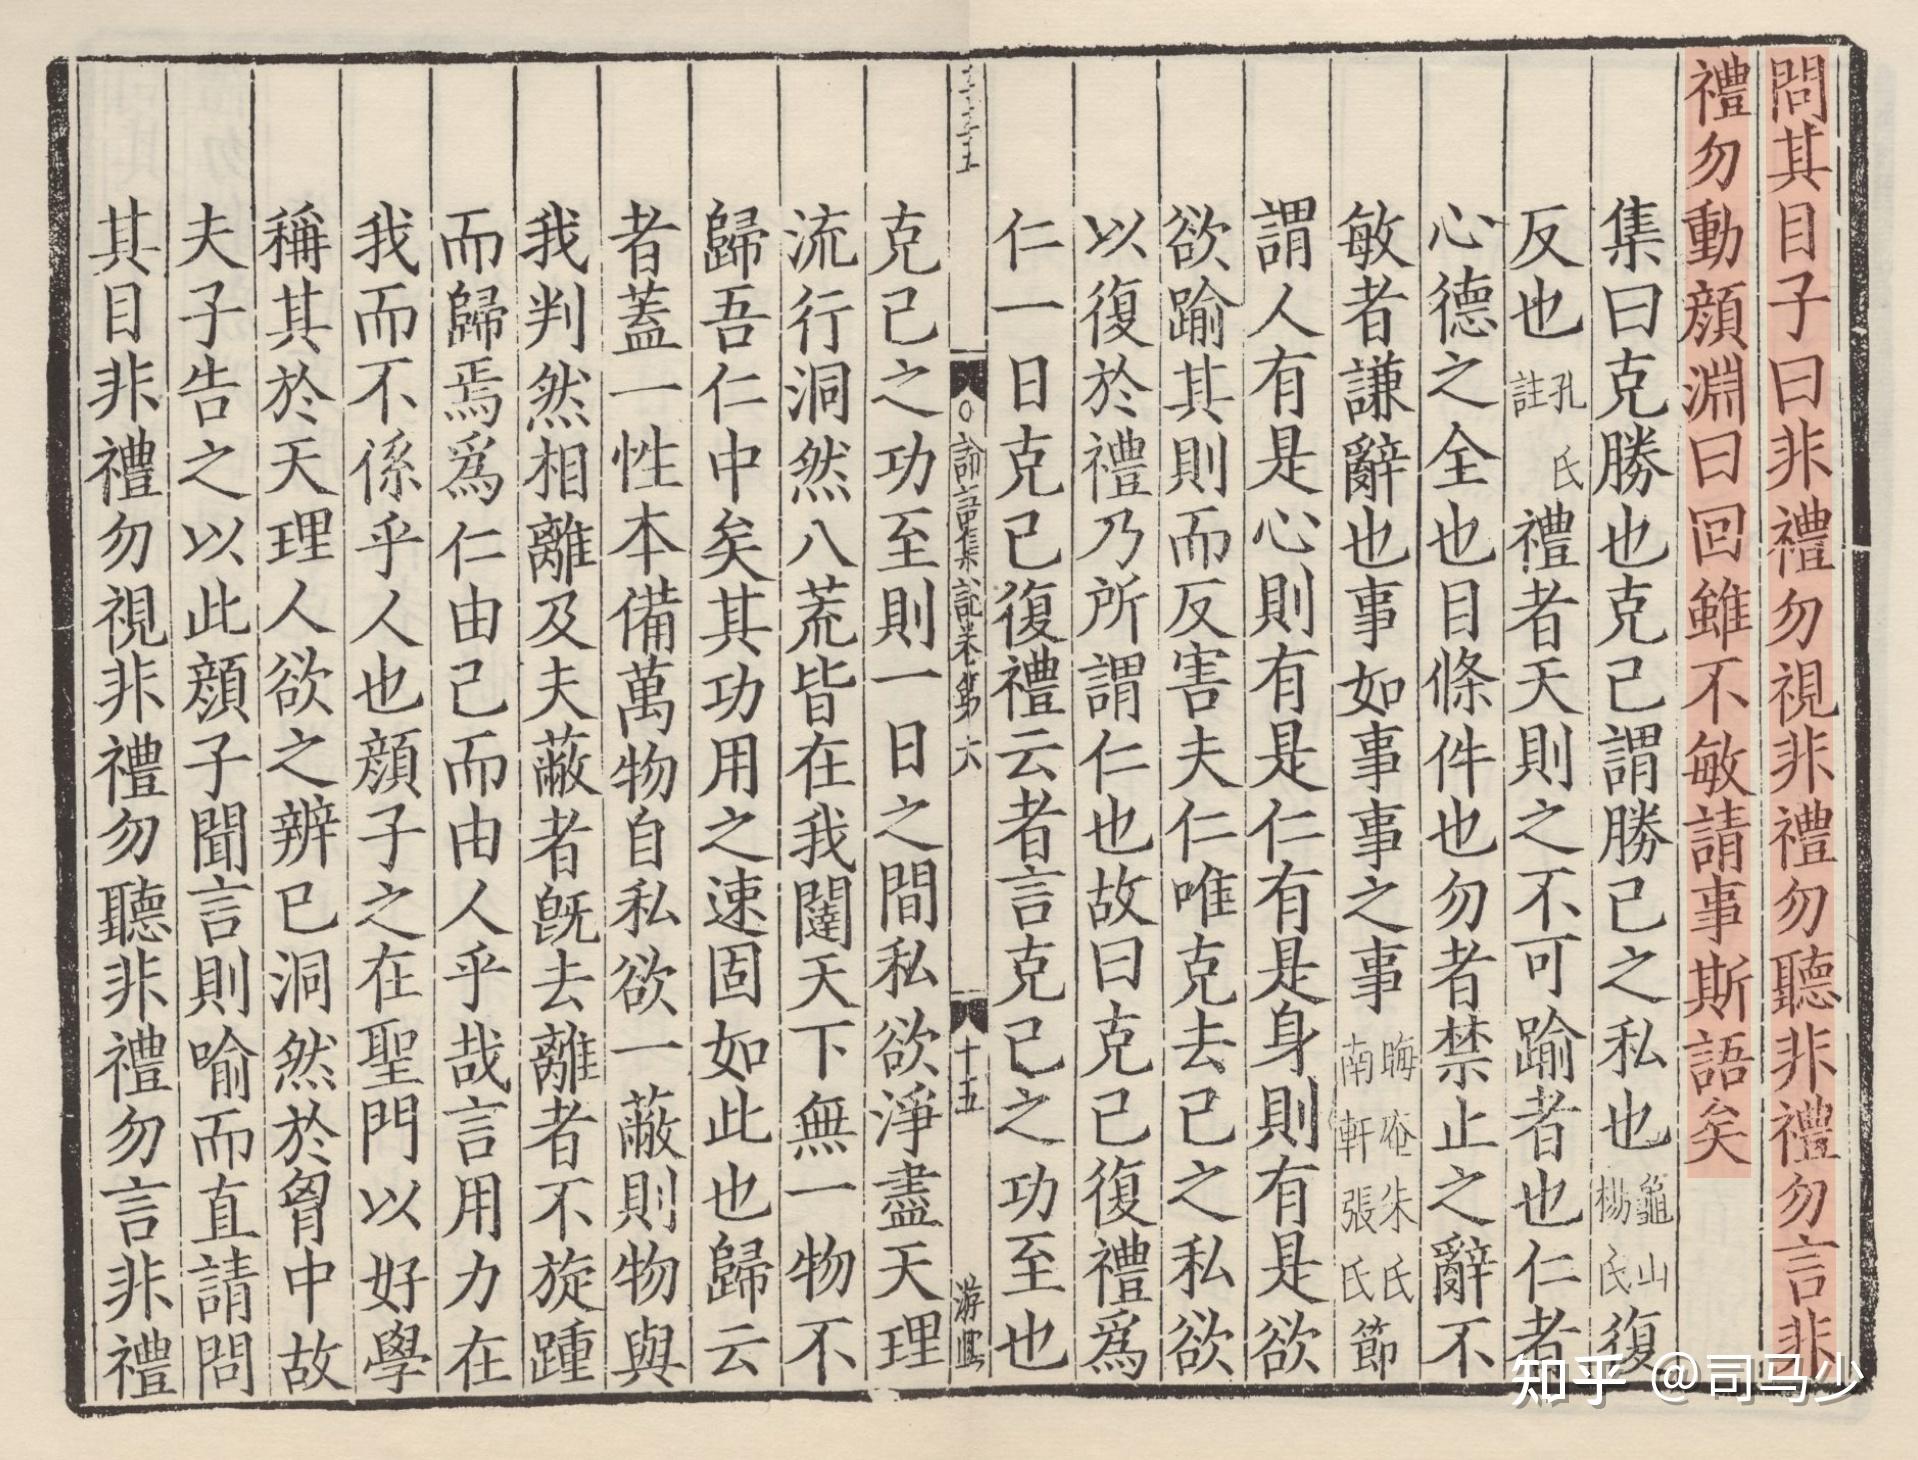 問其目子曰非禮勿視非禮勿聽非禮勿言非
禮勿動顔淵曰回雖不敏請事斯語矣
集曰克勝也克己謂勝己之私也龜山楊氏復
反也孔氏註禮者天則之不可踰者也仁者
心德之全也目條件也勿者禁止之辭不
敏者謙辭也事如事事之事晦庵朱氏南軒張氏節
謂人有是心則有是仁有是身則有是欲
欲踰其則而反害夫仁唯克去己之私欲
以復於禮乃所謂仁也故曰克己復禮爲
仁一日克己復禮云者言克己之功至也
論語集說卷第六
十五
游熙
克己之功至則一日之間私欲淨盡天理
流行洞然八荒皆在我闥天下無一物不
歸吾仁中矣其功用之速固如此也歸云
者蓋一性本備萬物自私欲一蔽則物與
我判然相離及夫蔽者旣去離者不旋踵
而歸焉爲仁由己而由人乎哉言用力在
我而不係乎人也顔子之在聖門以好學
稱其於天理人欲之辨已洞然於胷中故
夫子告之以此顔子聞言則喻而直請問
其目非禮勿視非禮勿聽非禮勿言非禮
知乎 @司马少